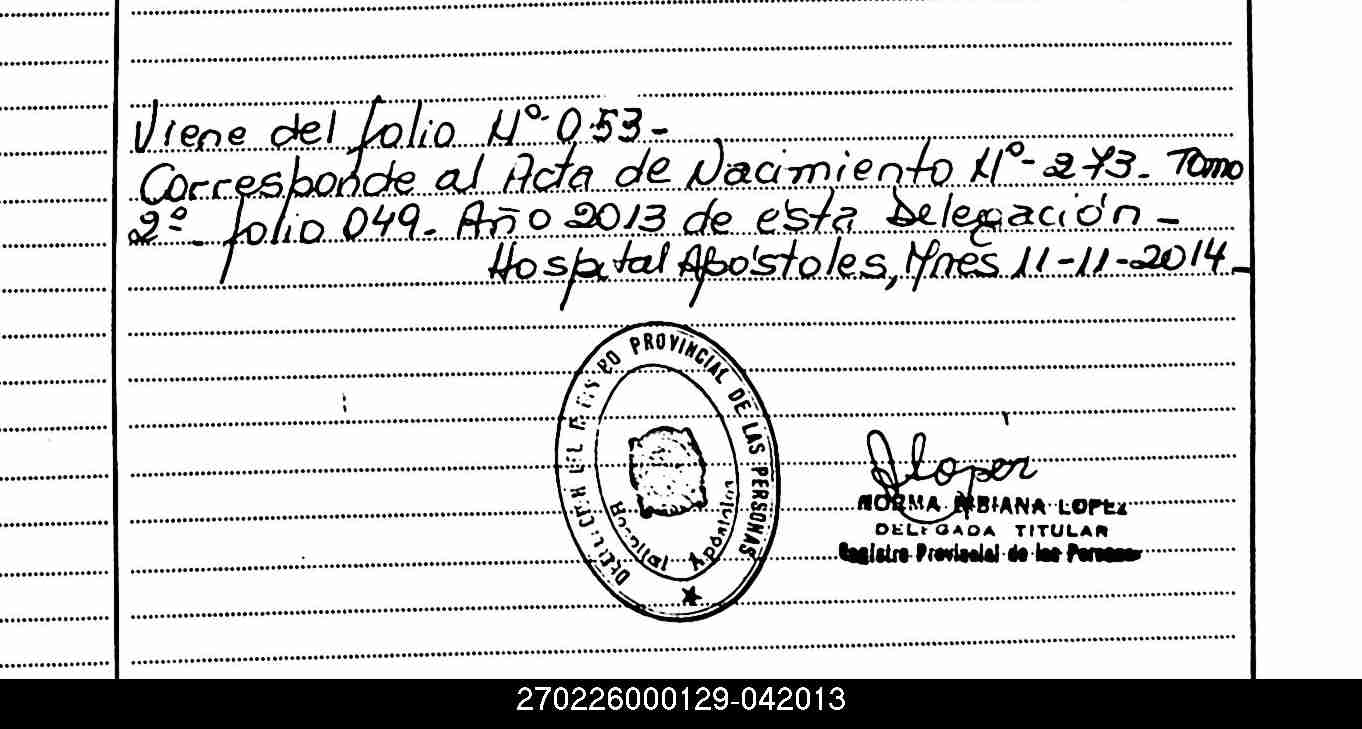 Viene del folio Nº-053-
Corresponde al Acta de Nacimiento Nº-273- Tomo
2º- folio 049- Año 2013 de ésta Delegación-
Hospital Apóstoles, Mnes 11-11-2014-
PROVINCIAL DE LAS PERSONAS
Hospital Apóstoles
Lopez
NORMA BIBIANA LOPEZ
DELEGADA TITULAR
Registro Provincial de las Personas
270226000129-042013